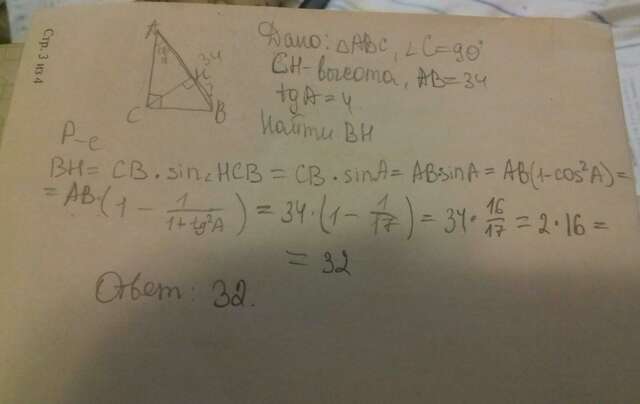 Стр. 3 из 4
A
34
H
C
B
Дано: △ABC, ∠C=90°
CH-высота, AB=34
tgA=4
Найти BH
Р-е
BH= CB·sin∠HCB = CB·sinA = AB·sinA = AB(1-cos²A)=
= AB·(1 - 1/(1+tg²A)) = 34·(1 - 1/17) = 34·16/17 = 2·16 =
= 32
Ответ: 32.